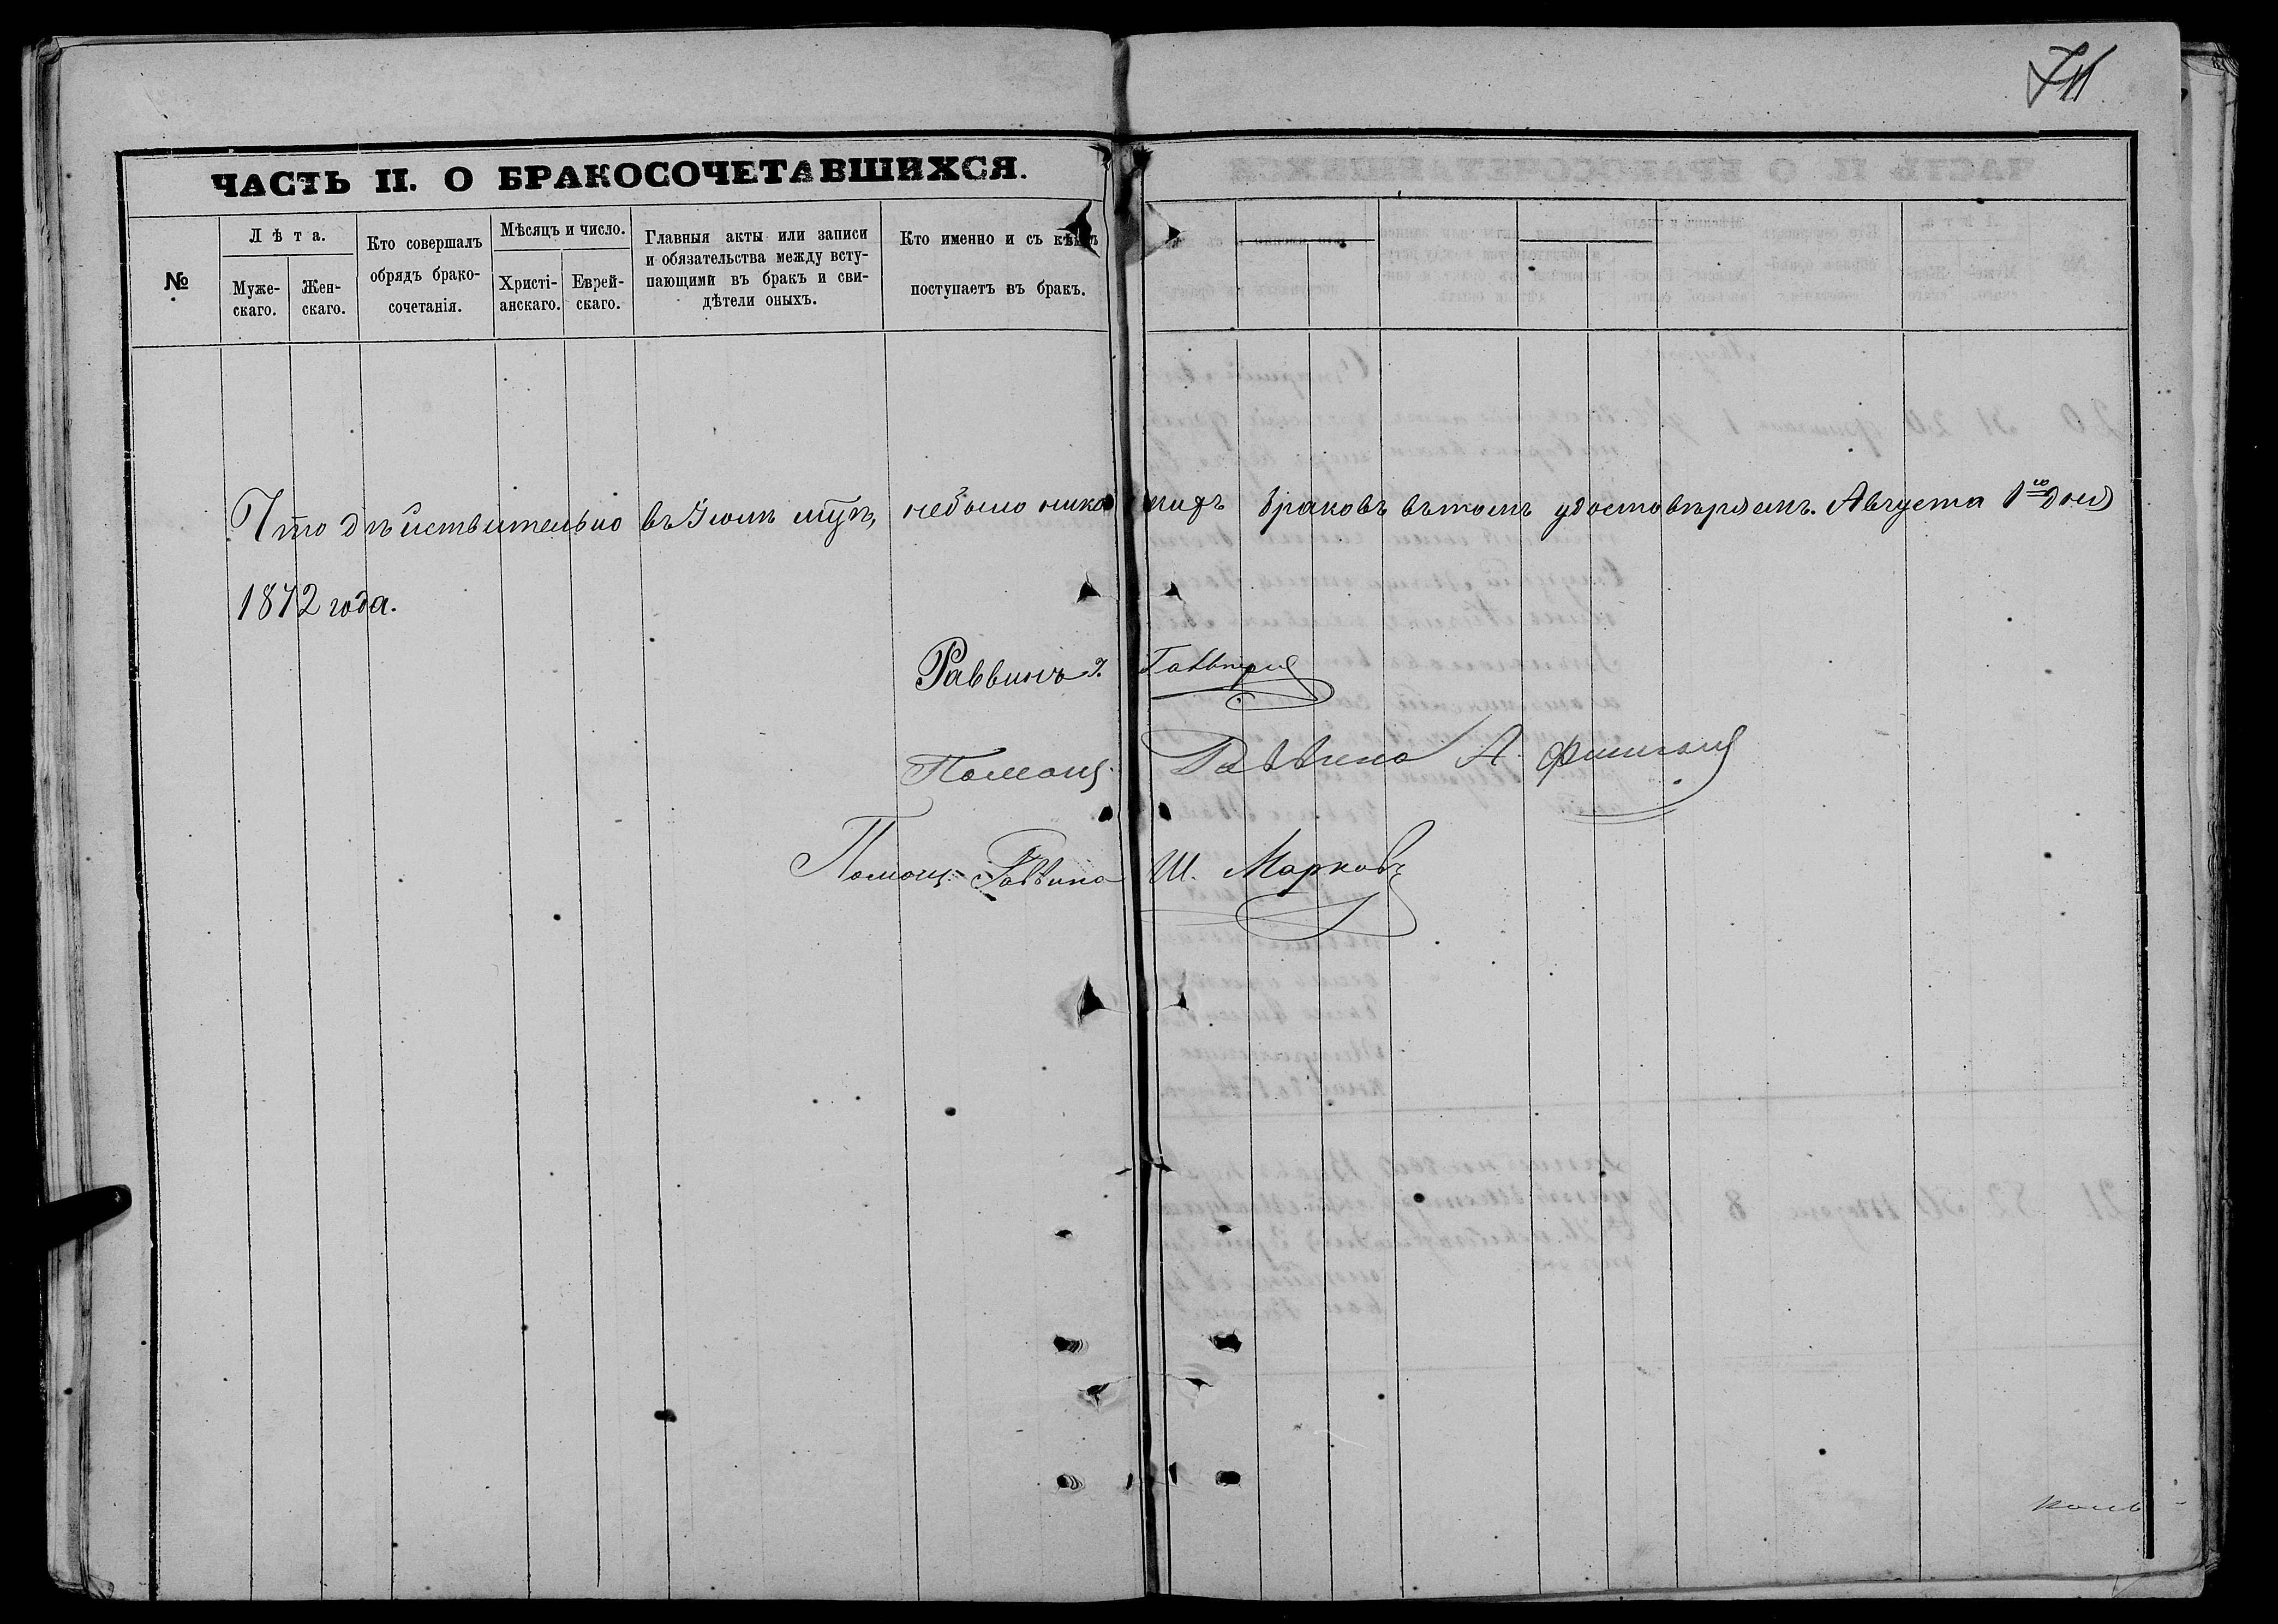 ЧАСТЬ II. О БРАКОСОЧЕТАВШИХСЯ.
№
Лѣта.
Муже-
скаго.
Жен-
скаго.
Кто совершалъ
обрядъ брако-
сочетанія.
Мѣсяцъ и число.
Христі-
анскаго.
Еврей-
скаго.
Главныя акты или записи
и обязательства между всту-
пающими въ бракъ и сви-
дѣтели оныхъ.
Кто именно и съ кѣмъ
поступаетъ въ бракъ.
Что дѣйствительно въ Іюлѣ мцѣ, небыло никакихъ браковъ въ томъ удостовѣряемъ. Августа 1го дня
1872 года.
Раввинъ
Помощ. Раввина А.
Помощ. Раввина Ш. Марковъ